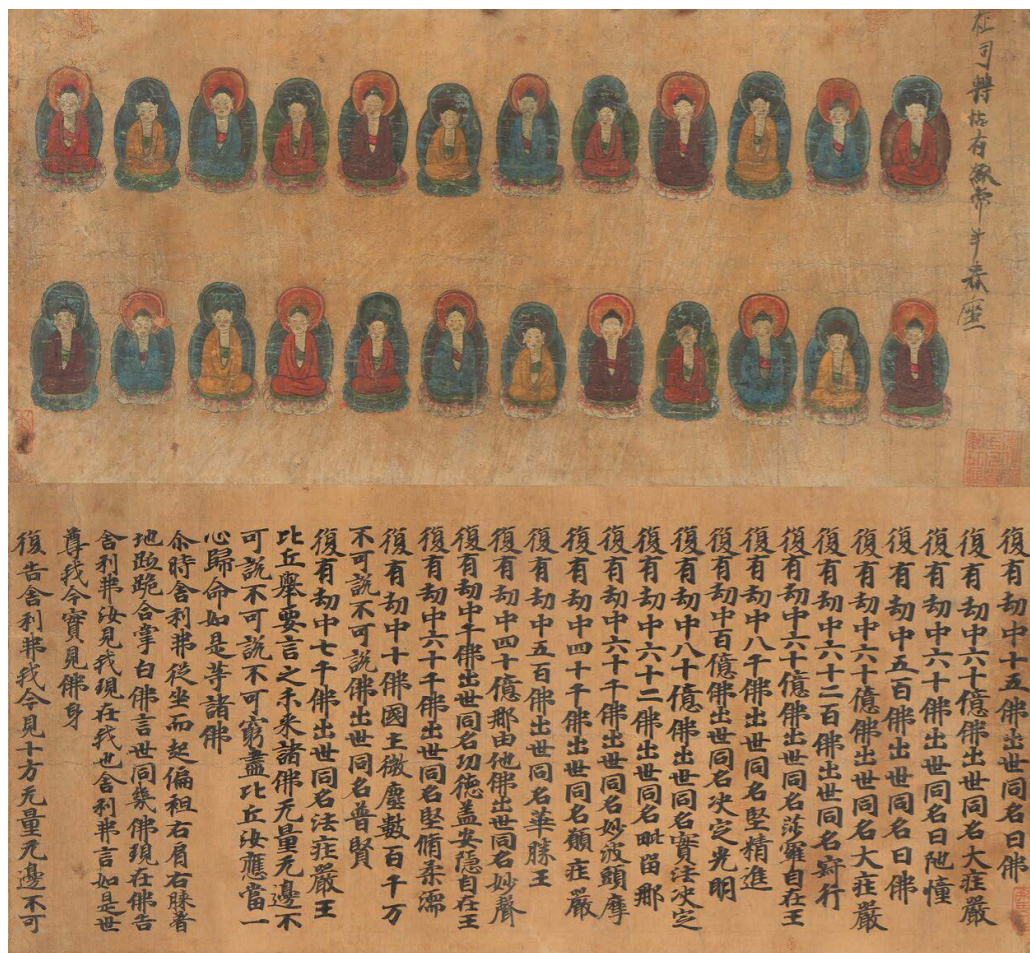 復有劫中十五佛出世同名日佛
復有劫中六十億佛出世同名大疰嚴
復有劫中六十佛出世同名日陁憧
復有劫中五百佛出世同名日佛
復有劫中六十億佛出世同名大疰嚴
復有劫中六十二百佛出世同名寂行
復有劫中六十億佛出世同名莎羅自在王
復有劫中八千佛出世同名堅精進
復有劫中百億佛出世同名决定光明
復有劫中八十億佛出世同名實法决定
復有劫中六十二佛出世同名毗留那
復有劫中六十千佛出世同名妙波頭摩
復有劫中四十千佛出世同名願疰嚴
復有劫中五百佛出世同名華勝王
復有劫中四十億那由他佛出世同名妙聲
復有劫中千佛出世同名功德盖安隱自在王
復有劫中六十千佛出世同名堅脩柔濡
復有劫中十佛國土微塵數百千万
不可說不可說佛出世同名普賢
復有劫中七千佛出世同名法疰嚴王
比丘舉要言之未來諸佛无量无邊不
可說不可說不可窮盡比丘汝應當一
心歸命如是等諸佛
尒時舍利弗從坐而起偏袒右肩右膝著
地䠒跪合掌白佛言世同幾佛現在佛告
舍利弗汝見我現在我也舍利弗言如是世
尊我今實見佛身
復告舍利弗我今見十方无量无邊不可